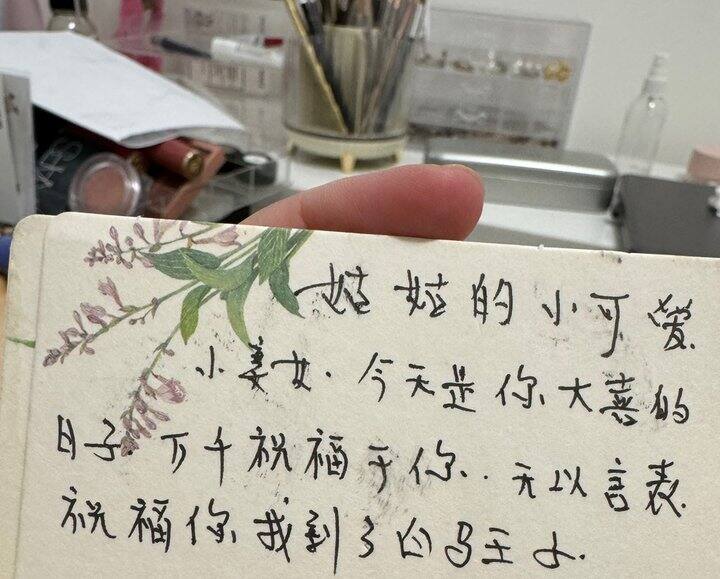 姑姑的小可爱
小美女.今天是你大喜的
日子.万千祝福于你..无以言表.
祝福你找到了白马王子.
NARS